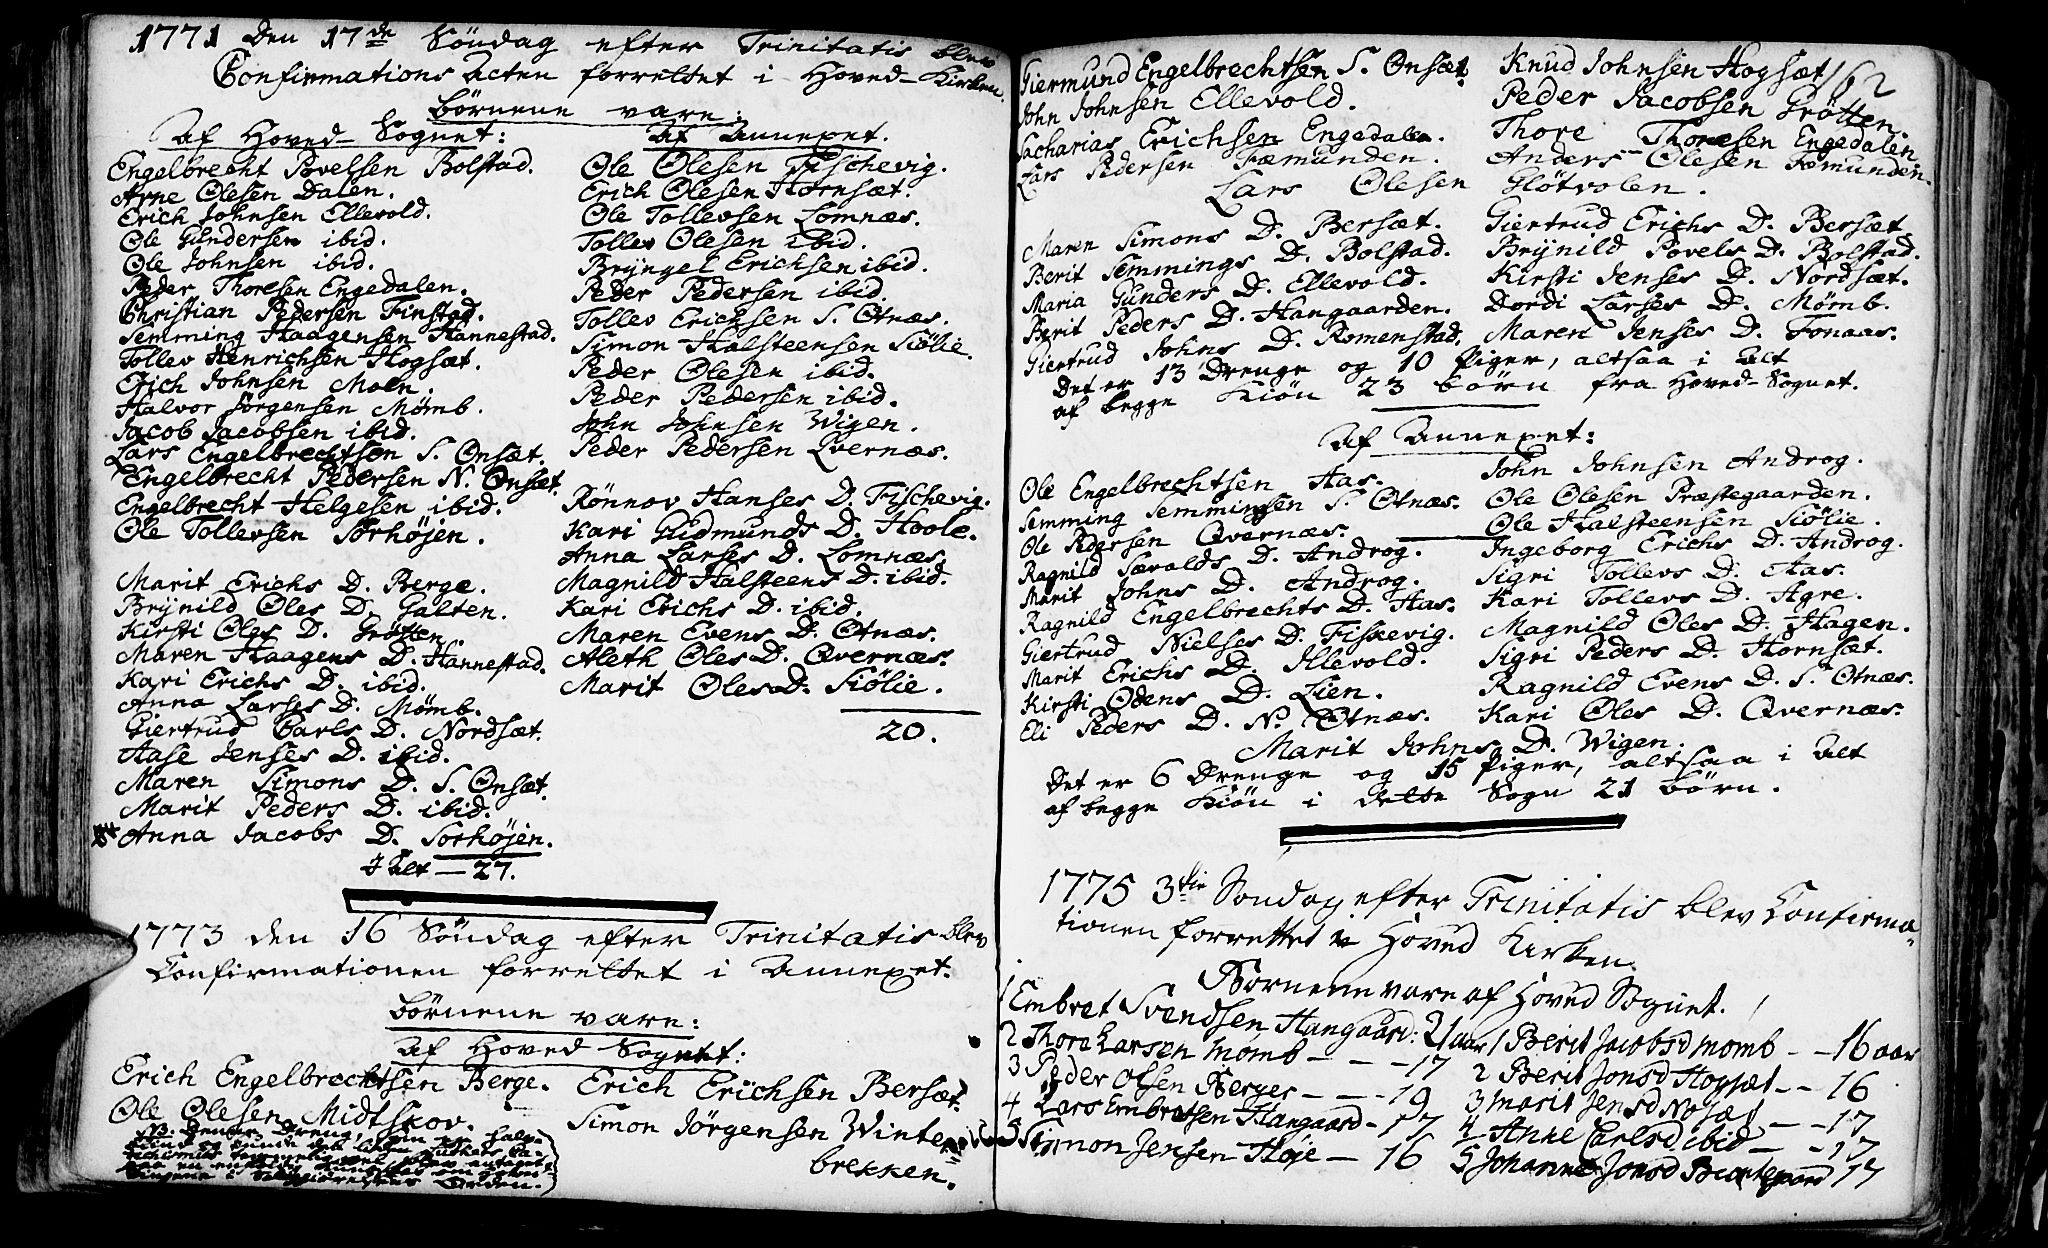 1771 den 17de Söndag efter Trinitatis blev
Confirmations Acten forrettet i Hoved-Kirken.
Börnene vare:
Af Hoved-Sognet:
Engelbrecht Povelsen Bolstad.
Arne Olesen Dalen.
Erich Johnsen Ellevold.
Ole Gundersen ibid.
Ole Johnsen ibid.
Peder Thoresen Engedalen.
Christian Pedersen Finstad.
Semming Haagensen Hannestad.
Tollev Henrichsen Hogsæt.
Erich Johnsen Moen.
Halvor Jörgensen Mömb.
Jacob Jacobsen ibid.
Lars Engelbrechtsen S. Onsæt.
Engelbrecht Pedersen N. Onsæt.
Engelbrecht Helgesen ibid.
Ole Tollevsen Sorhöjen.
Marit Erichs D. Berge.
Brÿnild Oles D. Galten.
Kirsti Oles D. Grötten.
Maren Haagens D. Hannestad.
Kari Erichs D. ibid.
Anna Larses D. Mömb.
Giertrud Carls D. Nordsæt.
Aase Jenses D. ibid.
Maren Simons D. S. Onsæt.
Marit Peders D. ibid.
Anna Jacobs D. Sorhöjen.
I Alt — 27.
Af Annexet.
Ole Olesen Fischevig.
Erich Olesen Hornsæt.
Ole Tollevsen Lomnæs.
Tollev Olesen ibid.
Brÿngel Erichsen ibid.
Peder Pedersen ibid.
Tollev Erichsen S. Otnæs.
Simon Halsteensen Siölie.
Peder Olesen ibid.
Peder Pedersen ibid.
John Johnsen Wigen.
Peder Pedersen Qvernæs.
Rönnov Hanses D. Fischevig.
Kari Gudmunds D. Hoole.
Anna Larses D. Lomnæs.
Magnild Halsteens D. ibid.
Kari Erichs D. ibid.
Maren Evens D. Otnæs.
Aleth Oles D. Qvernæs.
Marit Oles D. Siölie.
20.
1773 den 16 Söndag efter Trinitatis blev
Confirmationen forrettet i Annexet.
Börnene vare:
Af Hoved Sognet:
Erich Engelbrechtsen Berge.
Ole Olesen Midtskov.
Erich Erichsen Bersæt.
Simon Jörgensen Winter=
brekken.
162
Giermund Engelbrechtsen S. Onsæt.
John Johnsen Ellevold.
Sacharias Erichsen Engedalen.
Lars Pedersen Fæmunden.
Knud Johnsen Hogsæt
Peder Jacobsen Grötten.
Thore Thoresen Engedalen
Anders Olesen Fæmunden.
Lars Olesen Glötvolen.
Maren Simons D. Bersæt.
Berit Semmings D. Bolstad.
Maria Gunders D. Ellevold.
Berit Peders D. Hangaarden.
Giertrud Johns D. Romenstad.
Giertrud Erichs D. Bersæt.
Brÿnild Povels D. Bolstad.
Kirsti Jenses D. Nordsæt.
Dordi Larses D. Mömb.
Maren Jenses D. Fonaas.
Det er 13 Drenge og 10 Piger, altsaa i Alt
af begge Kiön 23 börn fra Hoved-Sognet.
Af Annexet:
Ole Engelbrechtsen Aas.
Semming Semmingsen S. Otnæs.
Ole Pedersen Qvernæs.
Ragnild Sævalds D. Androg.
Marit Johns D. Androg.
Ragnild Engelbrechts D. Aas.
Giertrud Nielses D. Fiskevig.
Marit Erichs D. Illevold.
Kirsti Odens D. Lien.
Eli Peders D. N. Otnæs.
John Johnsen Androg.
Ole Olesen Præstegaarden.
Ole Halsteensen Siölie.
Ingeborg Erichs D. Androg.
Sigri Tollevs D. Aas.
Kari Tollevs D. Agre.
Magnild Oles D. Hagen.
Sigri Peders D. Hornsæt.
Ragnild Evens D. S. Otnæs.
Kari Oles D. Qvernæs.
Marit Johns D. Wigen.
Det er 6 Drenge og 15 Piger, altsaa i Alt
af begge Kiön i dette Sogn 21 börn.
1775 3die Söndag efter Trinitatis blev Confirma=
tionen forrettet i Hoved Kirken.
Börnene vare af Hoved Sognet.
1 Embret Svendsen Hangaard: 21 aar
2 Thore Larsen Mömb - - - 17
3 Peder Olsen Berger - - - 19
4 Lars Embretsen Hangaard - 17
5 Simon Jensen Höje — 16
1 Berit Jacobsd Momb - - 16 aar
2 Berit Jonsd Hogsæt - - 16
3 Marit Jensd Nosæt - - 17
4 Anne Carlsd ibid - - 17
5 Johanne Jonsd 17